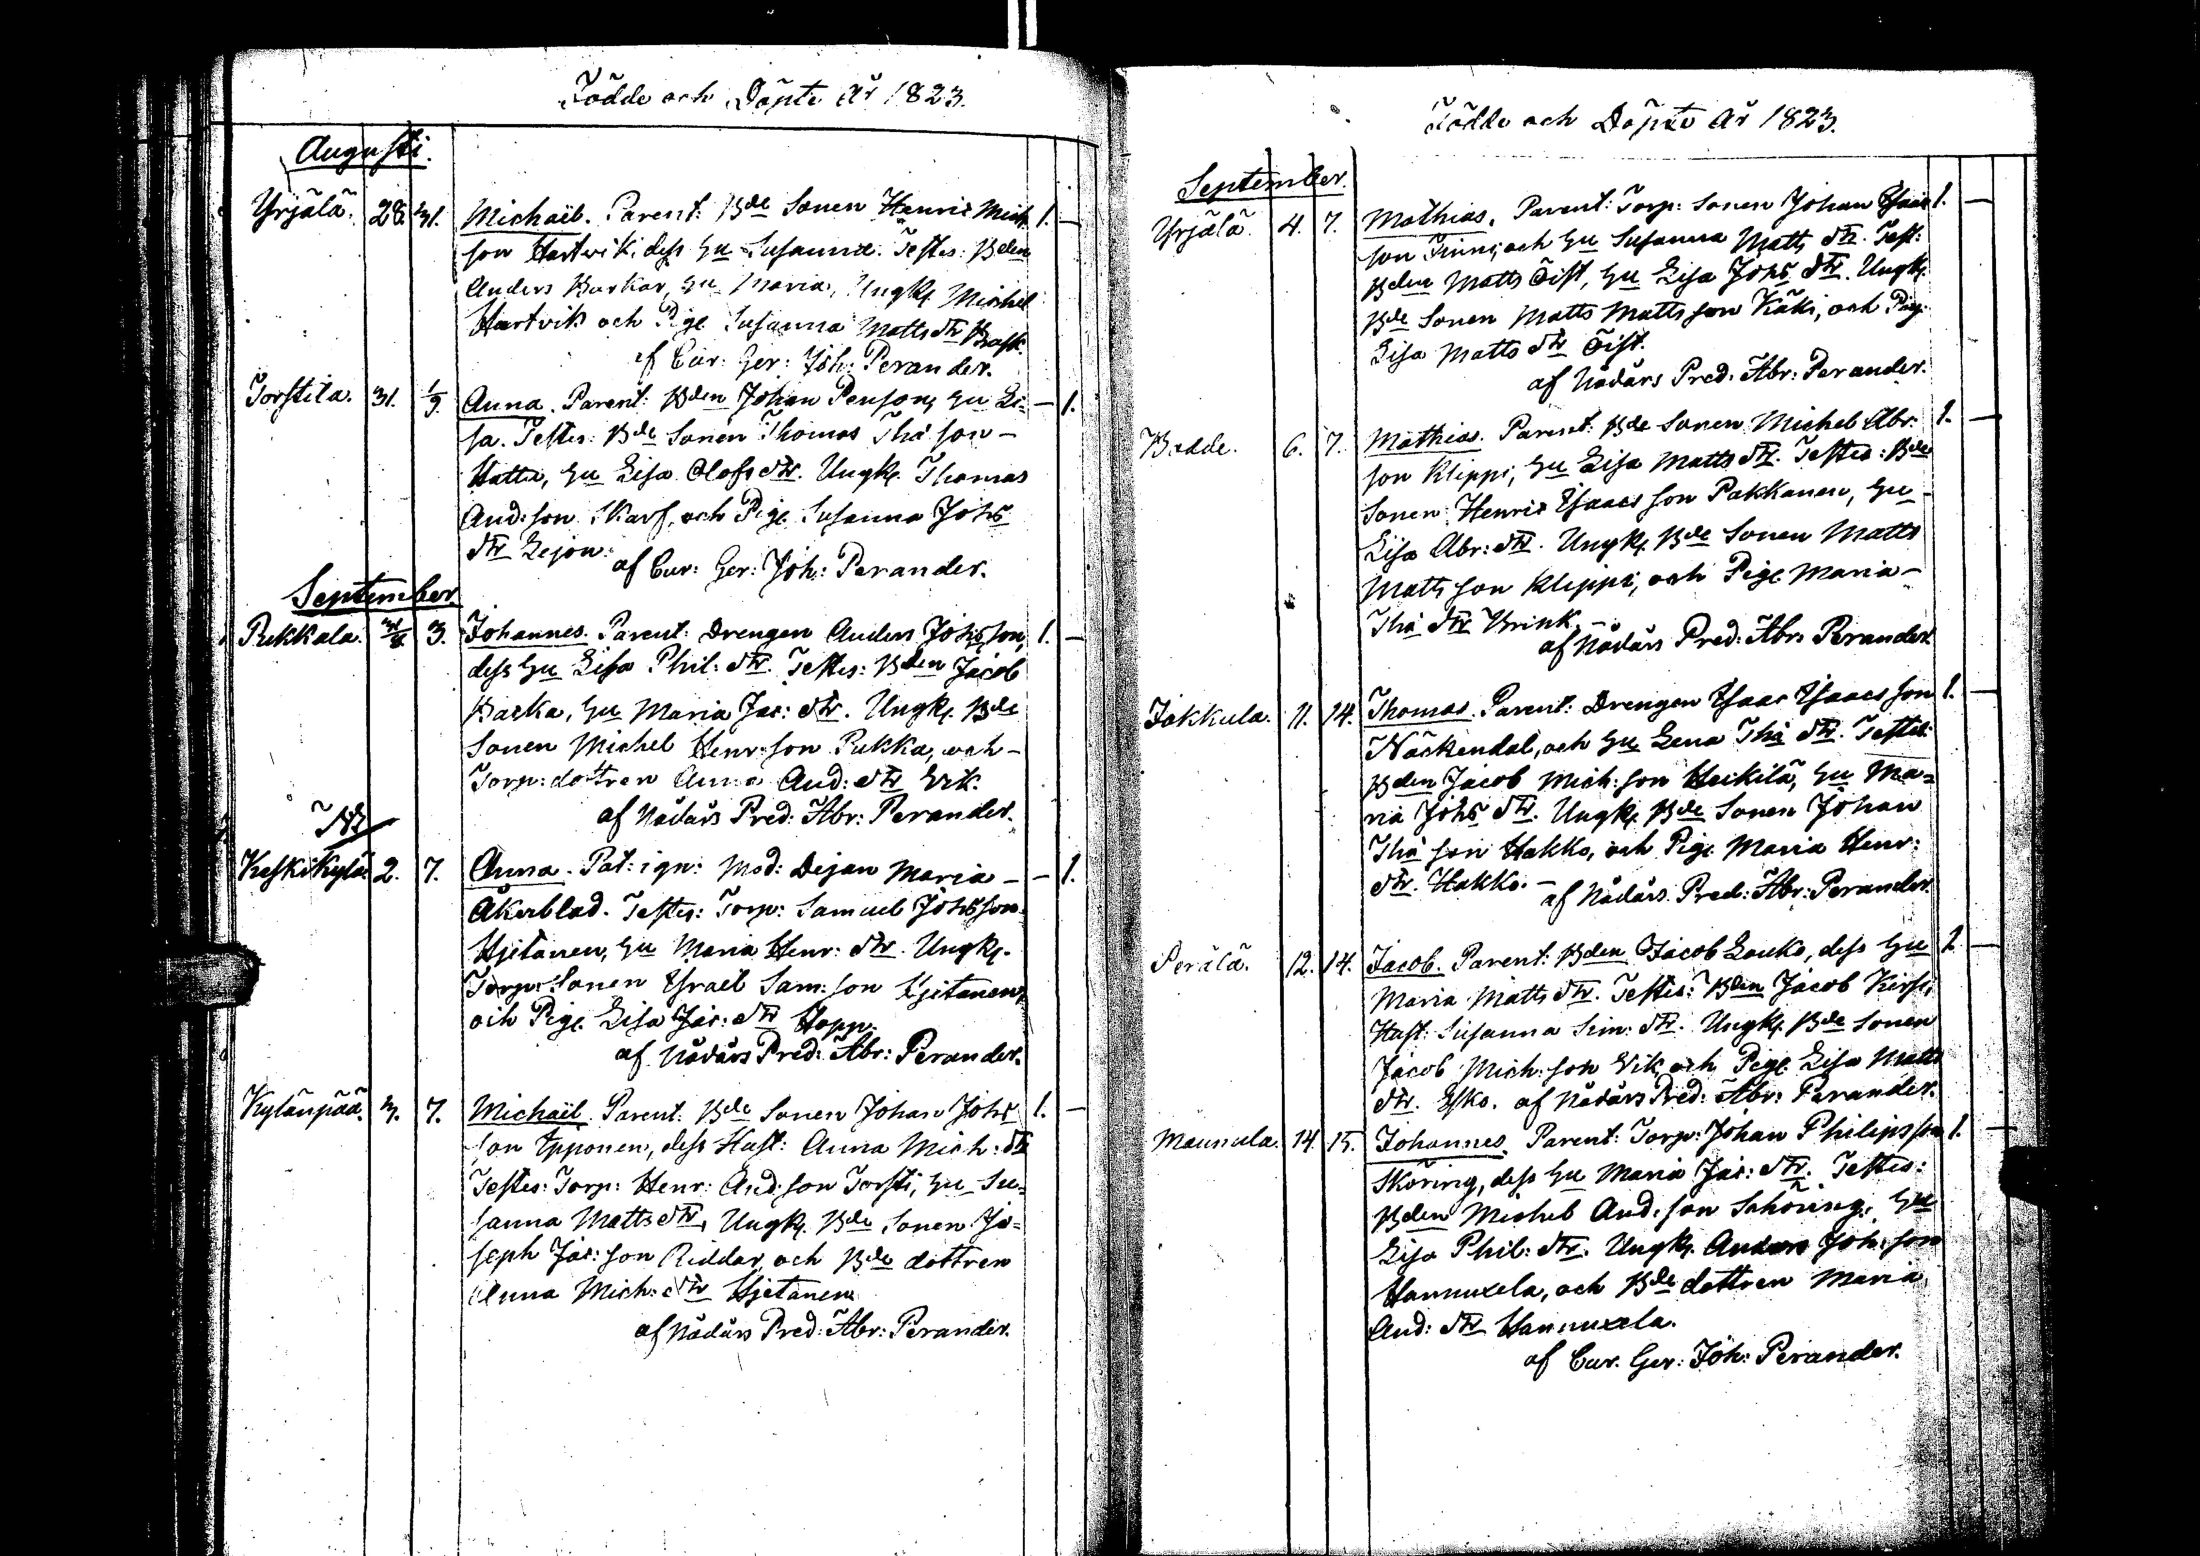 Födde och Döpte År 1823.
Augusti.
Yrjälä. 28. 31. Michaël. Parent: Bde Sonen Henric Mich: 1. —
son Hartvik, dess Hu Susanna. Testes: Bden
Anders Harkar, Hu Maria, Ungk. Michel
Hartvik och Pig. Susanna Matts dtr Bask.
af Cur: Ger: Joh: Perander.
Torstila. 31. 1/9. Anna. Parent: Bden Johan Penson, Hu Li= — 1.
sa. Testes: Bde Sonen Thomas Thå son —
Hatta, Hu Lisa Olofs dtr. Ungk. Thomas
And: son Skarf, och Pig. Susanna Johs
dtr Lejon.
af Cur: Ger: Joh: Perander.
September
Pukkala. 31/8 3. Johannes. Parent: Drengen Anders Johs son, 1. —
dess Hu Lisa Phil: dtr. Testes: Bden Jacob
Backa, Hu Maria Jac: dtr. Ungk. Bde
Sonen Michel Henr: son Pukka, och —
Torp: dottren Anna And: dtr Vik.
af Nådårs Pred: Abr: Perander.
Keskikylä 2. 7. Anna. Pat: ign: Mod: Dejan Maria — — 1.
Åkerblad. Testes: Torp: Samuel Johs son
Hjetanen, Hu Maria Henr: dtr. Ungk.
Torp: Sonen Israel Sam: son Hjetanen,
och Pig. Lisa Jac: dtr Hopp.
af Nådårs Pred: Abr: Perander.
Kylänpää. 3. 7. Michaël. Parent: Bde Sonen Johan Johs 1. —
son Ypponen, dess Hust: Anna Mich: dtr
Testes: Torp: Henr: And: son Torsti, Hu Su=
sanna Matts dtr, Ungk. Bde Sonen Jo=
seph Jac: son Riddar, och Bde dottren
Anna Mich: dtr Hjetanen
af Nådårs Pred: Abr: Perander.
Födde och Döpte År 1823.
September.
Yrjälä. 4. 7. Mathias. Parent: Torp: Sonen Johan Isaacs 1. —
son Finni, och Hu Susanna Matts dtr. Test:
Bden Matts Tist, Hu Lisa Johs dtr. Ungk.
Bde Sonen Matts Matts son Käki, och Pig.
Lisa Matts dtr Tist.
af Nådårs Pred: Abr: Perander.
Bodde. 6. 7. Mathias. Parent: Bde Sonen Michel Abr: 1. —
son Klippi, Hu Lisa Matts dtr. Testes: Bde
Sonen Henric Isaacs son Pakkanen, Hu —
Lisa Abr: dtr. Ungk. Bde Sonen Matts
Matts son Klippi, och Pige Maria —
Thå dtr Brink. —
af Nådårs Pred: Abr: Perander.
Jakkula. 11. 14. Thomas. Parent: Drengen Isaac Isaacs son 1. —
Näckendal, och Hu Lena Thå dtr. Testes:
Bden Jacob Mich: son Heikilä, Hu Ma=
ria Johs dtr. Ungk. Bde Sonen Johan
Thå son Hakko, och Pig. Maria Henr:
dtr. Hakko. — af Nådårs Pred: Abr: Perander.
Perälä. 12. 14. Jacob. Parent: Bden Jacob Louko, dess Hu 1. —
Maria Matts dtr. Testes: Bden Jacob Kirsi,
Hust: Susanna Sim: dtr. Ungk. Bde Sonen
Jacob Mich: son Vik och Pige Lisa Matts
dtr. Esko. af Nådårs Pred: Abr: Perander.
Maunula. 14. 15. Johannes. Parent: Torp: Johan Philips son 1. —
Sköring, dess Hu Maria Jac: dtr. Testes:
Bden Michel And: son Schöring, Hu
Lisa Phil: dtr. Ungk. Anders Joh: son
Hannuxela, och Bde dottren Maria
And: dtr Hannuxela.
af Cur. Ger: Joh: Perander.